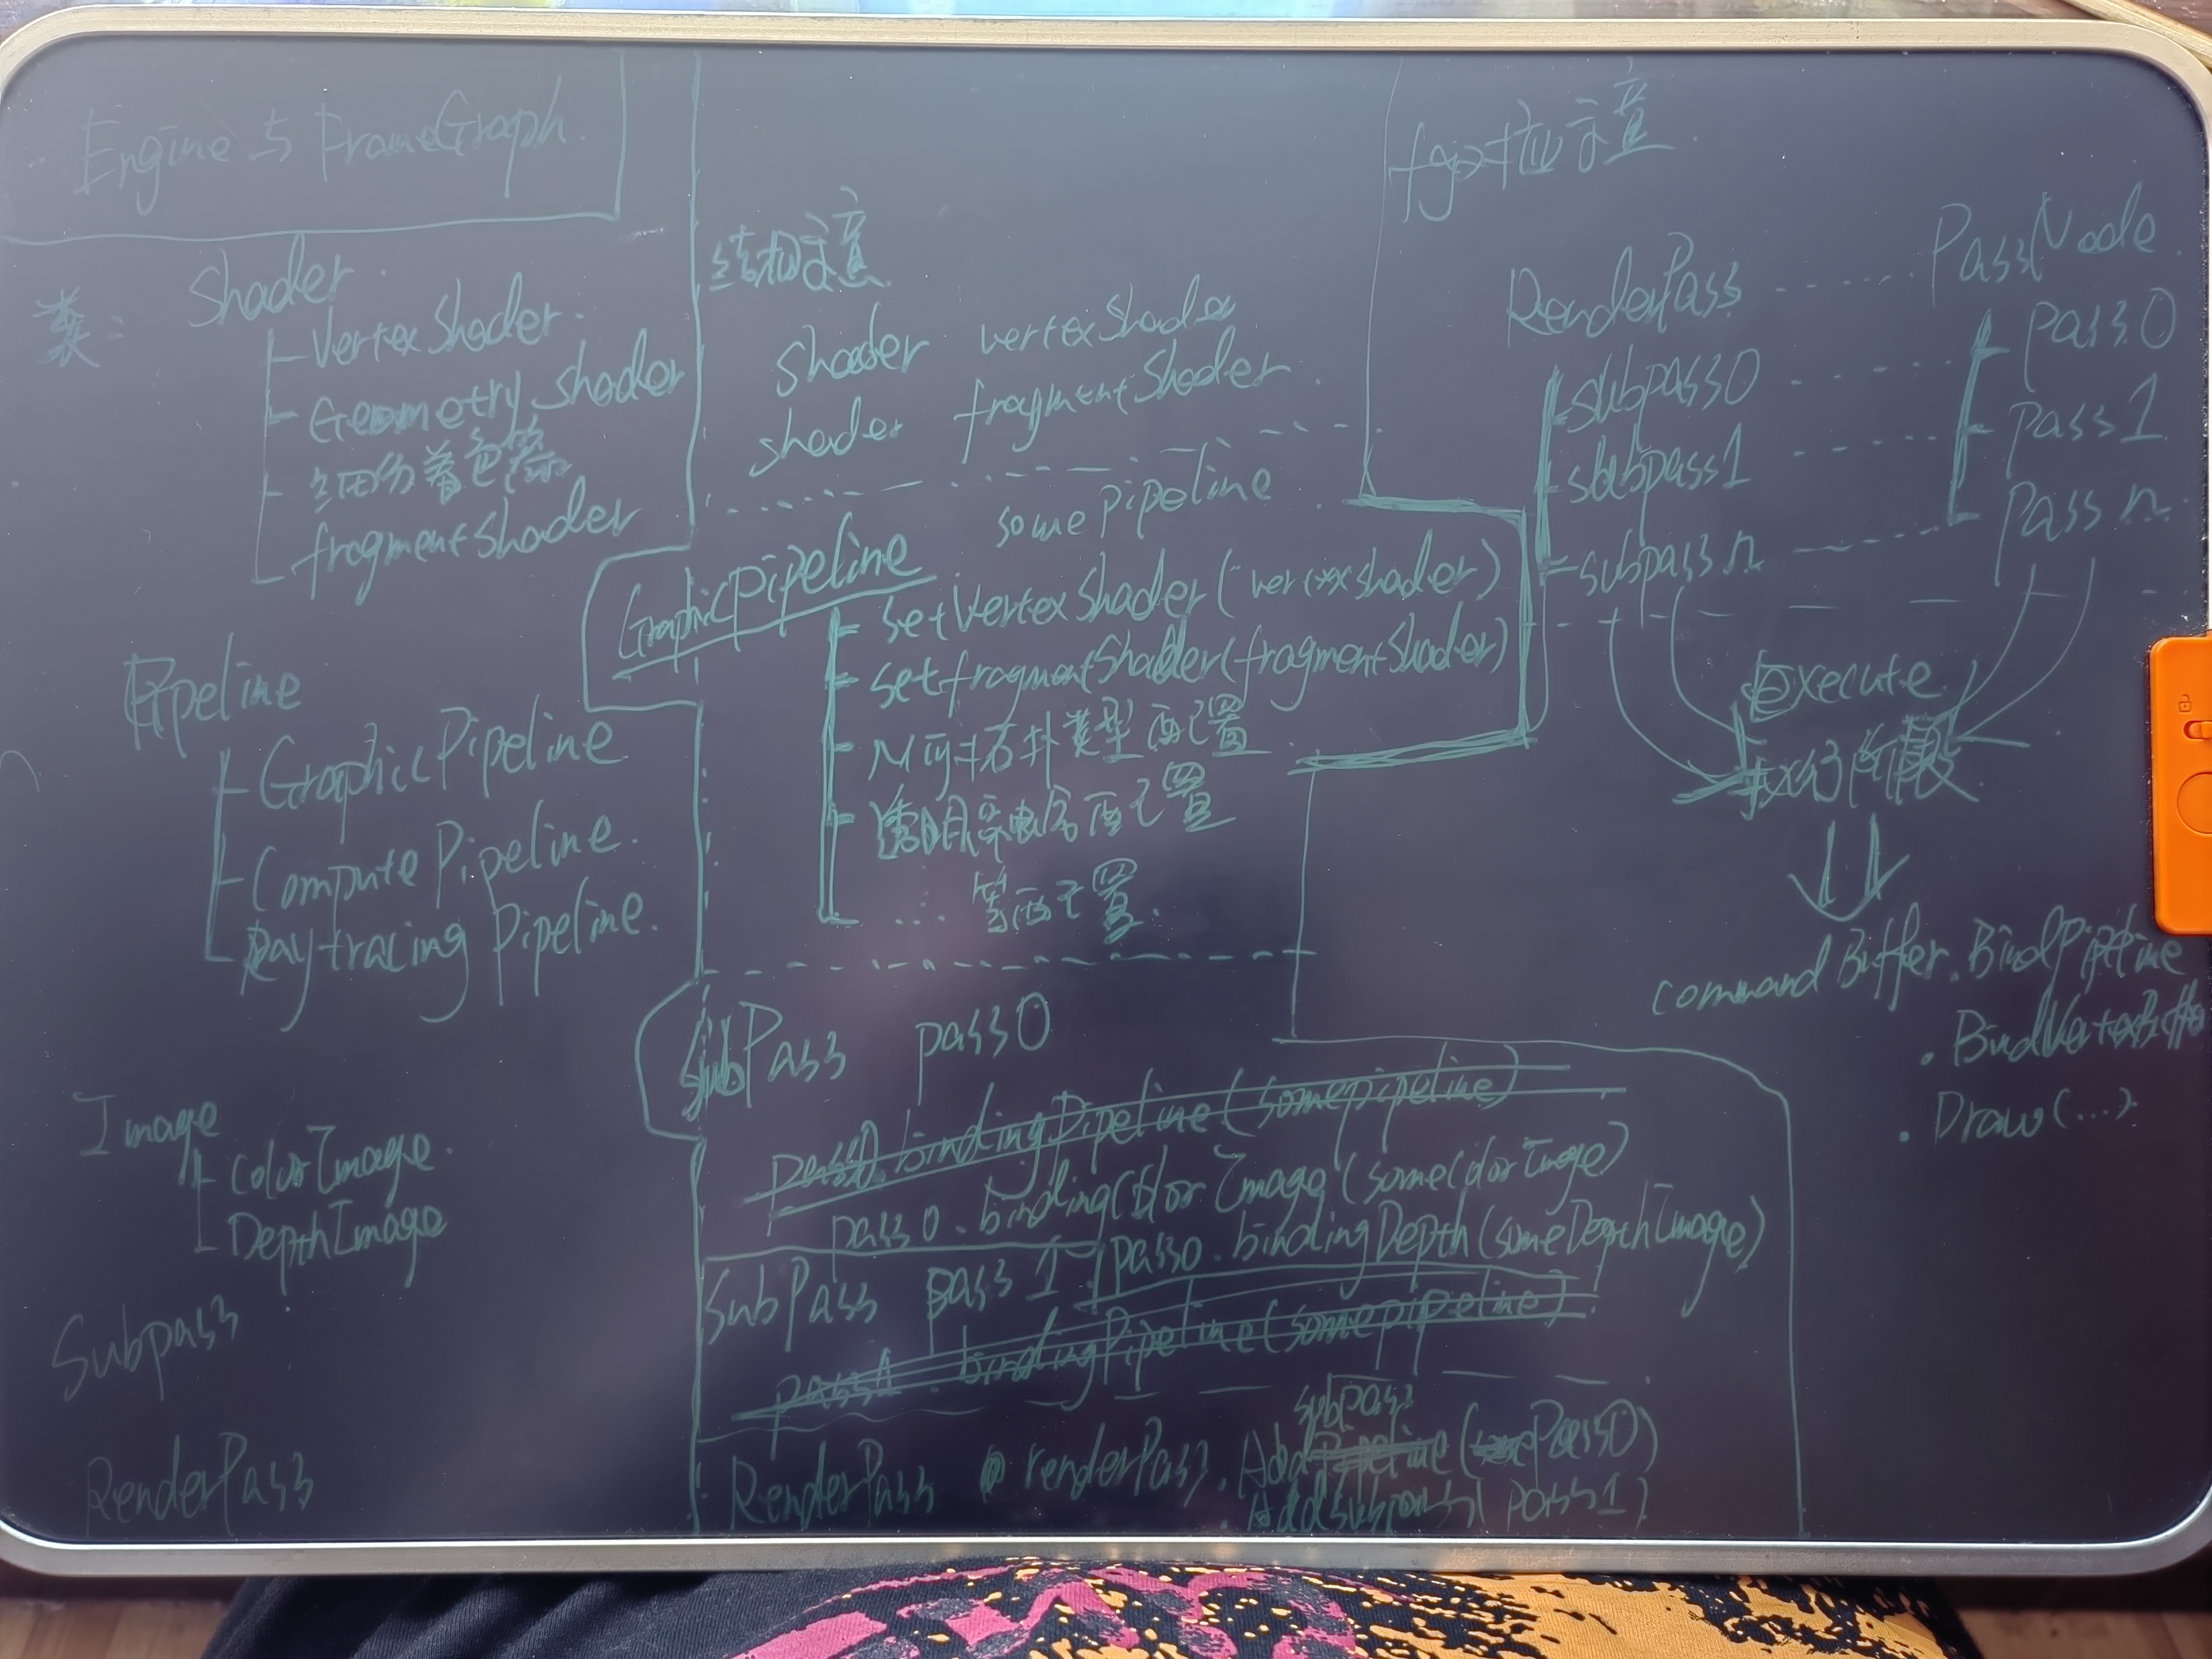 Engine 与 FrameGraph
类: Shader
VertexShader
Geometry shader
细分着色器
fragmentShader
Pipeline
GraphicPipeline
Compute Pipeline.
Raytracing Pipeline.
Image
ColorImage.
DepthImage
Subpass
RenderPass
结构示意
Shader vertexShader
shader fragmentShader
GraphicPipeline some pipeline
setVertexShader(vertexshader)
setfragmentShader(fragmentShader)
拓扑类型配置
配置
... 等配置.
SubPass pass0
pass0.bindingPipeline(somepipeline)
pass0.bindingColorImage(someColorImage)
pass0.bindingDepth(someDepthImage)
SubPass pass1
pass1.bindingPipeline(somepipeline)
RenderPass renderPass.Add subpass (Pass0)
.Addsubpass(pass1)
fg对应示意
RenderPass ...... PassNode
subpass0 ..... pass0
subpass1 ..... pass1
subpass n ..... pass n
execute
执行阶段
commandBuffer.BindPipeline
.Draw(...)